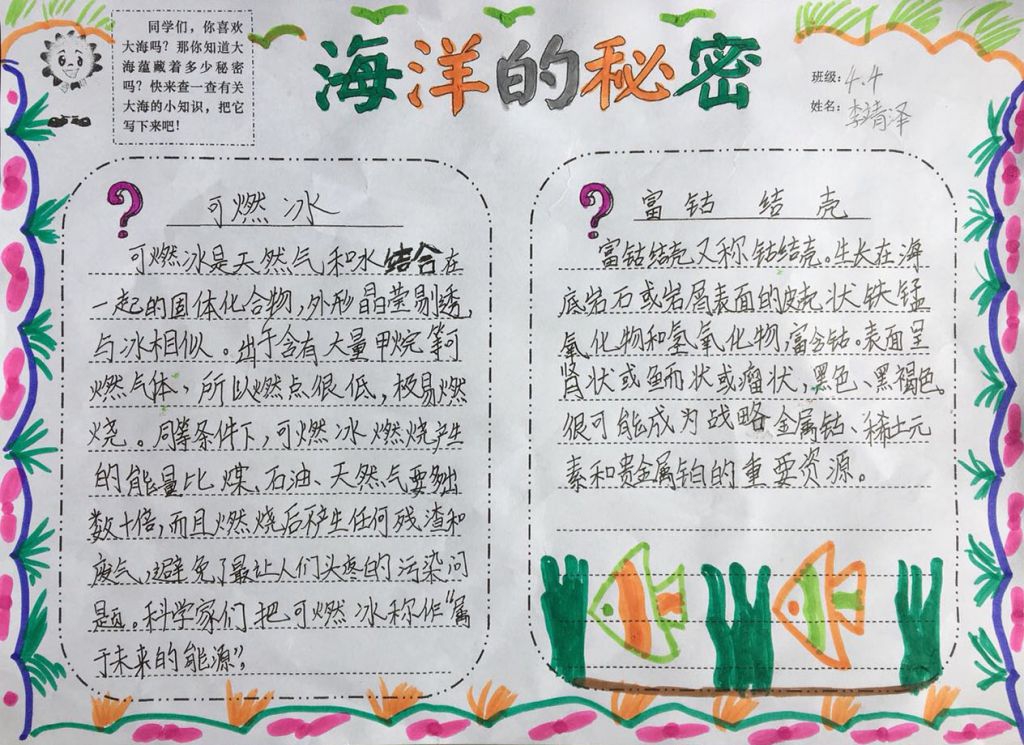 同学们，你喜欢
大海吗？那你知道大
海蕴藏着多少秘密
吗？快来查一查有关
大海的小知识，把它
写下来吧！
海洋的秘密
班级：4.4
姓名：李靖泽
? 可燃冰
可燃冰是天然气和水结合在
一起的固体化合物，外形晶莹剔透，
与冰相似。由于含有大量甲烷等可
燃气体，所以燃点很低，极易燃
烧。同等条件下，可燃冰燃烧产生
的能量比煤、石油、天然气要多出
数十倍，而且燃烧后不产生任何残渣和
废气，避免了最让人们头疼的污染问
题。科学家们把可燃冰称作“属
于未来的能源”。
? 富钴结壳
富钴结壳又称钴结壳。生长在海
底岩石或岩屑表面的皮壳状铁锰
氧化物和氢氧化物，富含钴。表面呈
肾状或鲕状或瘤状，黑色、黑褐色。
很可能成为战略金属钴、稀土元
素和贵金属铂的重要资源。